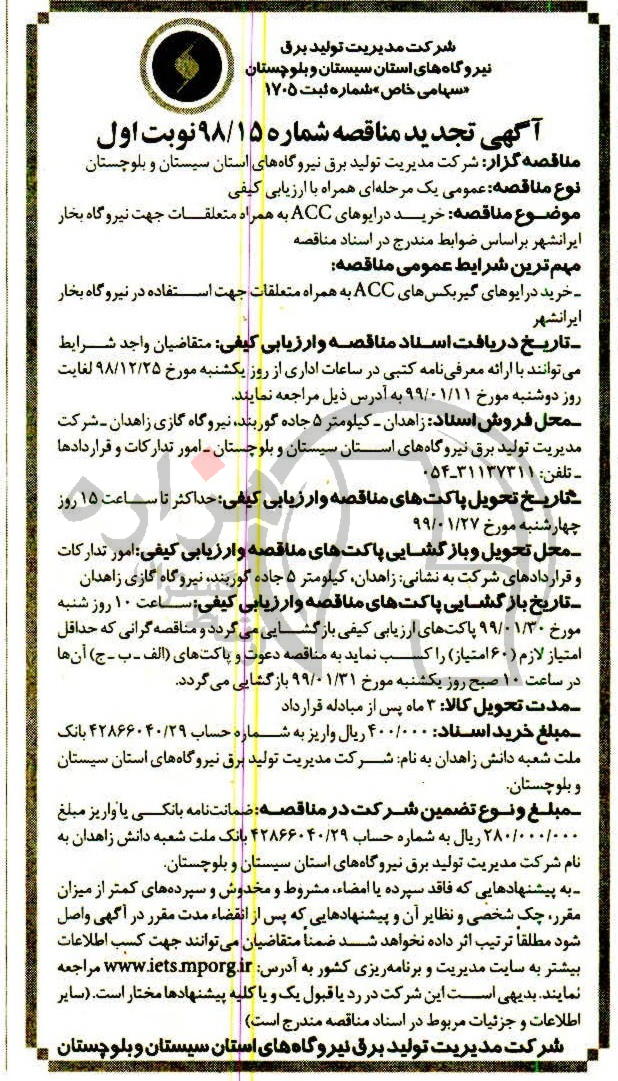 شرکت مدیریت تولید برق
نیروگاه‌های استان سیستان و بلوچستان
«سهامی خاص» شماره ثبت ۱۷۰۵
آگهی تجدید مناقصه شماره ۹۸/۱۵ نوبت اول
مناقصه گزار: شرکت مدیریت تولید برق نیروگاه‌های استان سیستان و بلوچستان
نوع مناقصه: عمومی یک مرحله‌ای همراه با ارزیابی کیفی
موضوع مناقصه: خرید درایوهای ACC به همراه متعلقات جهت نیروگاه بخار
ایرانشهر براساس ضوابط مندرج در اسناد مناقصه
مهم ترین شرایط عمومی مناقصه:
ـ خرید درایوهای گیربکس‌های ACC به همراه متعلقات جهت استفاده در نیروگاه بخار
ایرانشهر
ـ تاریخ دریافت اسناد مناقصه و ارزیابی کیفی: متقاضیان واجد شرایط
می‌توانند با ارائه معرفی‌نامه کتبی در ساعات اداری از روز یکشنبه مورخ ۹۸/۱۲/۲۵ لغایت
روز دوشنبه مورخ ۹۹/۰۱/۱۱ به آدرس ذیل مراجعه نمایند.
ـ محل فروش اسناد: زاهدان ـ کیلومتر ۵ جاده گوربند، نیروگاه گازی زاهدان ـ شرکت
مدیریت تولید برق نیروگاه‌های استان سیستان و بلوچستان ـ امور تدارکات و قراردادها
ـ تلفن: ۳۱۱۳۷۳۱۱ـ۰۵۴
ـ تاریخ تحویل پاکت‌های مناقصه و ارزیابی کیفی: حداکثر تا ساعت ۱۵ روز
چهارشنبه مورخ ۹۹/۰۱/۲۷
ـ محل تحویل و بازگشایی پاکت‌های مناقصه و ارزیابی کیفی: امور تدارکات
و قراردادهای شرکت به نشانی: زاهدان، کیلومتر ۵ جاده گوربند، نیروگاه گازی زاهدان
ـ تاریخ بازگشایی پاکت‌های مناقصه و ارزیابی کیفی: ساعت ۱۰ روز شنبه
مورخ ۹۹/۰۱/۳۰ پاکت‌های ارزیابی کیفی بازگشایی می‌گردد و مناقصه‌گرانی که حداقل
امتیاز لازم (۶۰ امتیاز) را کسب نماید به مناقصه دعوت و پاکت‌های (الف ـ ب ـ ج) آن‌ها
در ساعت ۱۰ صبح روز یکشنبه مورخ ۹۹/۰۱/۳۱ بازگشایی می‌گردد.
ـ مدت تحویل کالا: ۳ ماه پس از مبادله قرارداد
ـ مبلغ خرید اسناد: ۴۰۰/۰۰۰ ریال واریز به شماره حساب ۴۲۸۶۶۰۴۰/۲۹ بانک
ملت شعبه دانش زاهدان به نام: شرکت مدیریت تولید برق نیروگاه‌های استان سیستان
و بلوچستان.
ـ مبلغ و نوع تضمین شرکت در مناقصه: ضمانت‌نامه بانکی یا واریز مبلغ
۲۸۰/۰۰۰/۰۰۰ ریال به شماره حساب ۴۲۸۶۶۰۴۰/۲۹ بانک ملت شعبه دانش زاهدان به
نام شرکت مدیریت تولید برق نیروگاه‌های استان سیستان و بلوچستان.
ـ به پیشنهادهایی که فاقد سپرده یا امضاء، مشروط و مخدوش و سپرده‌های کمتر از میزان
مقرر، چک شخصی و نظایر آن و پیشنهادهایی که پس از انقضاء مدت مقرر در آگهی واصل
شود مطلقاً ترتیب اثر داده نخواهد شد ضمناً متقاضیان می‌توانند جهت کسب اطلاعات
بیشتر به سایت مدیریت و برنامه‌ریزی کشور به آدرس: www.iets.mporg.ir مراجعه
نمایند. بدیهی است این شرکت در رد یا قبول یک و یا کلیه پیشنهادها مختار است. (سایر
اطلاعات و جزئیات مربوط در اسناد مناقصه مندرج است)
شرکت مدیریت تولید برق نیروگاه‌های استان سیستان و بلوچستان
هزاره